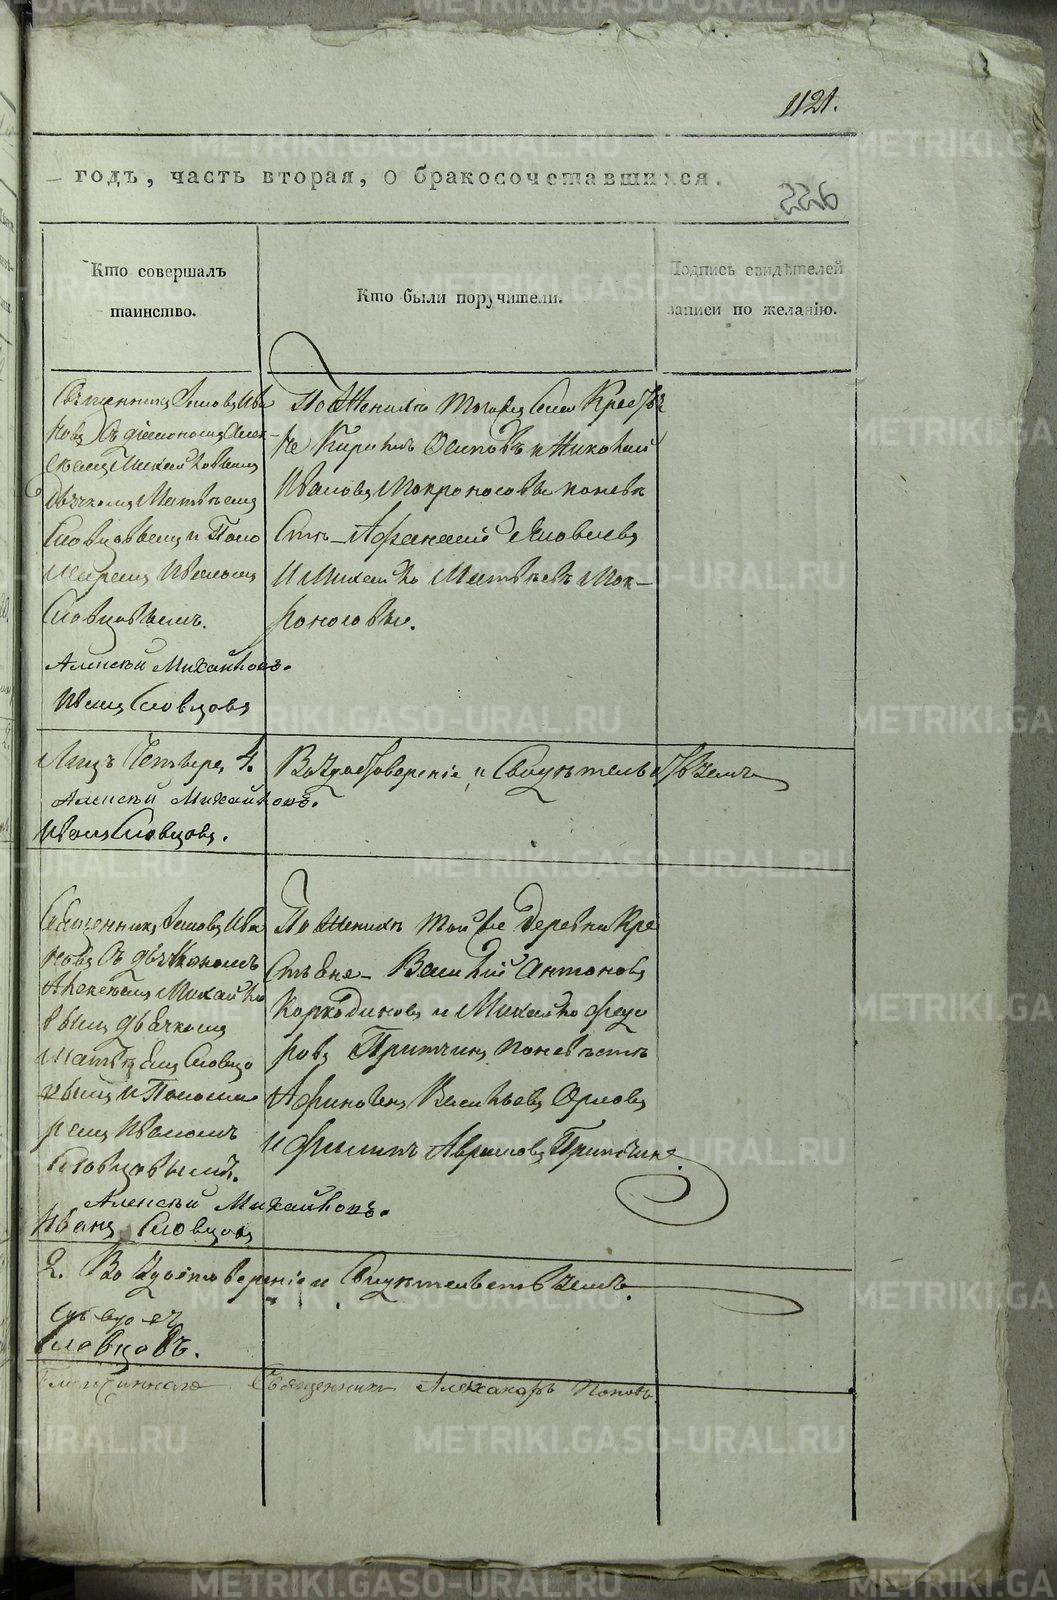 1121.
годъ, часть вторая, о бракосочетавшихся.
255
Кто совершалъ
таинство.
Кто были поручители.
Подпись свидѣтелей
записи по желанію.
Священникъ Іаковъ Ива
новъ Съ діакономъ Алек-
сѣемъ Михайловымъ
дьячкомъ Матвѣемъ
Словцовымъ и Поно
маремъ Иваномъ
Словцовымъ.
Алексѣй Михайловъ.
Иванъ Словцовъ
По Женихѣ того же Села Крестья
не Кирилъ Осиповъ и Николай
Ивановъ Мокроносовы по невѣ
стѣ Афанасій Яковлевъ
И Михайло Матвѣевъ Мок-
роносовы.
Лицъ Четыре, 4.
Алексѣй Михайловъ.
Иванъ Словцовъ.
Въ удостовереніе и Свидѣтельствуемъ
Священникъ Іаковъ Ива
новъ Съ діякономъ
Алексѣемъ Михайло
вымъ дьячкомъ
Матвѣемъ Словцо
вымъ и Понома
ремъ Иваномъ
Словцовымъ.
Алексѣй Михайловъ.
Иванъ Словцовъ
По Женихѣ той же деревни Кре
стьяне Василій Антоновъ
Коркодиновъ и Михайло Федо
ровъ Притчинъ по невѣстѣ
Афиногенъ Васильевъ Орловъ
и Филипъ Аврамовъ Притчинъ.
2. Во Удостовереніе и Свидѣтельствуемъ.
Словцовъ.
Священникъ Александръ Поповъ.
METRIKI.GASO-URAL.RU